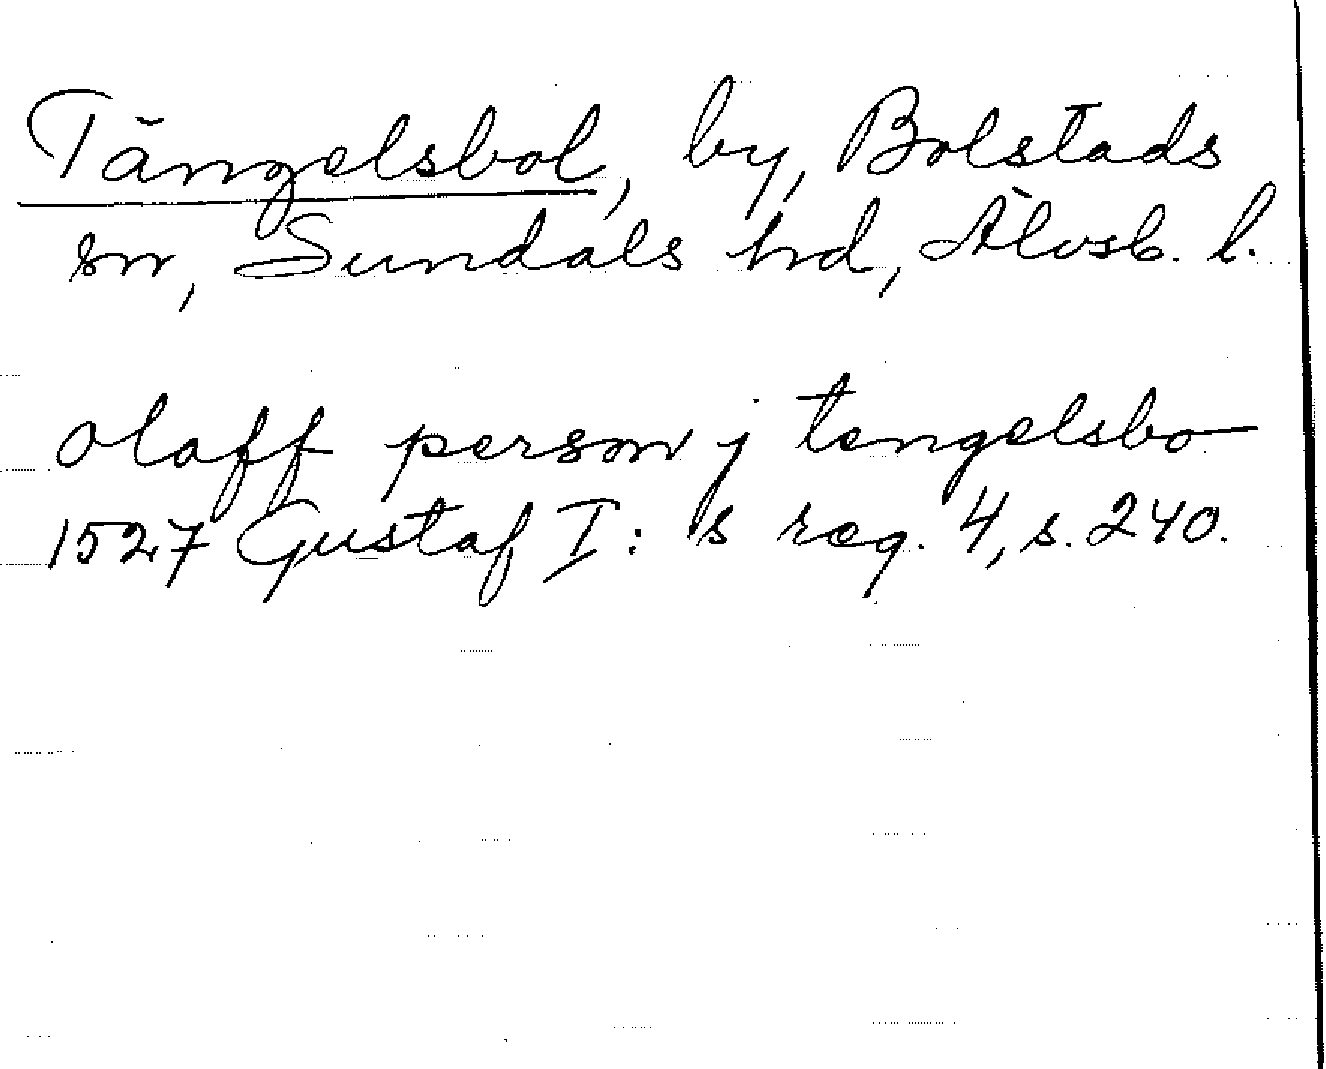 Tängelsbol, by, Bolstads
sn, Sundals hd, Älvsb. l.
olaff person j tengelsbo
1527 Gustaf I:s reg. 4, s. 240.